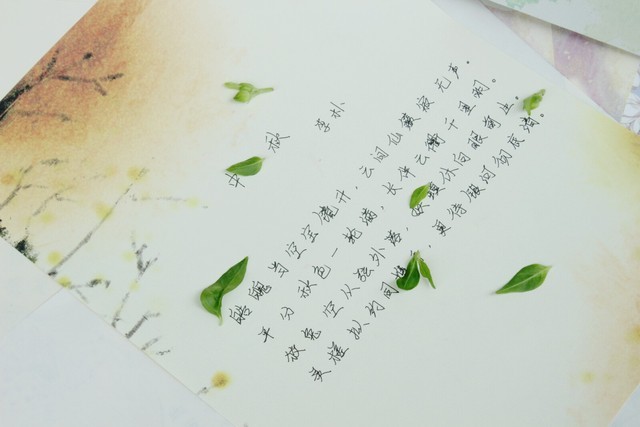 中秋 李朴
皓魄当空宝镜升，云间仙籁寂无声。
平分秋色一轮满，长伴云衢千里明。
狡兔空从弦外落，妖蟆休向眼前生。
灵槎拟约同携，更待银河彻底清。